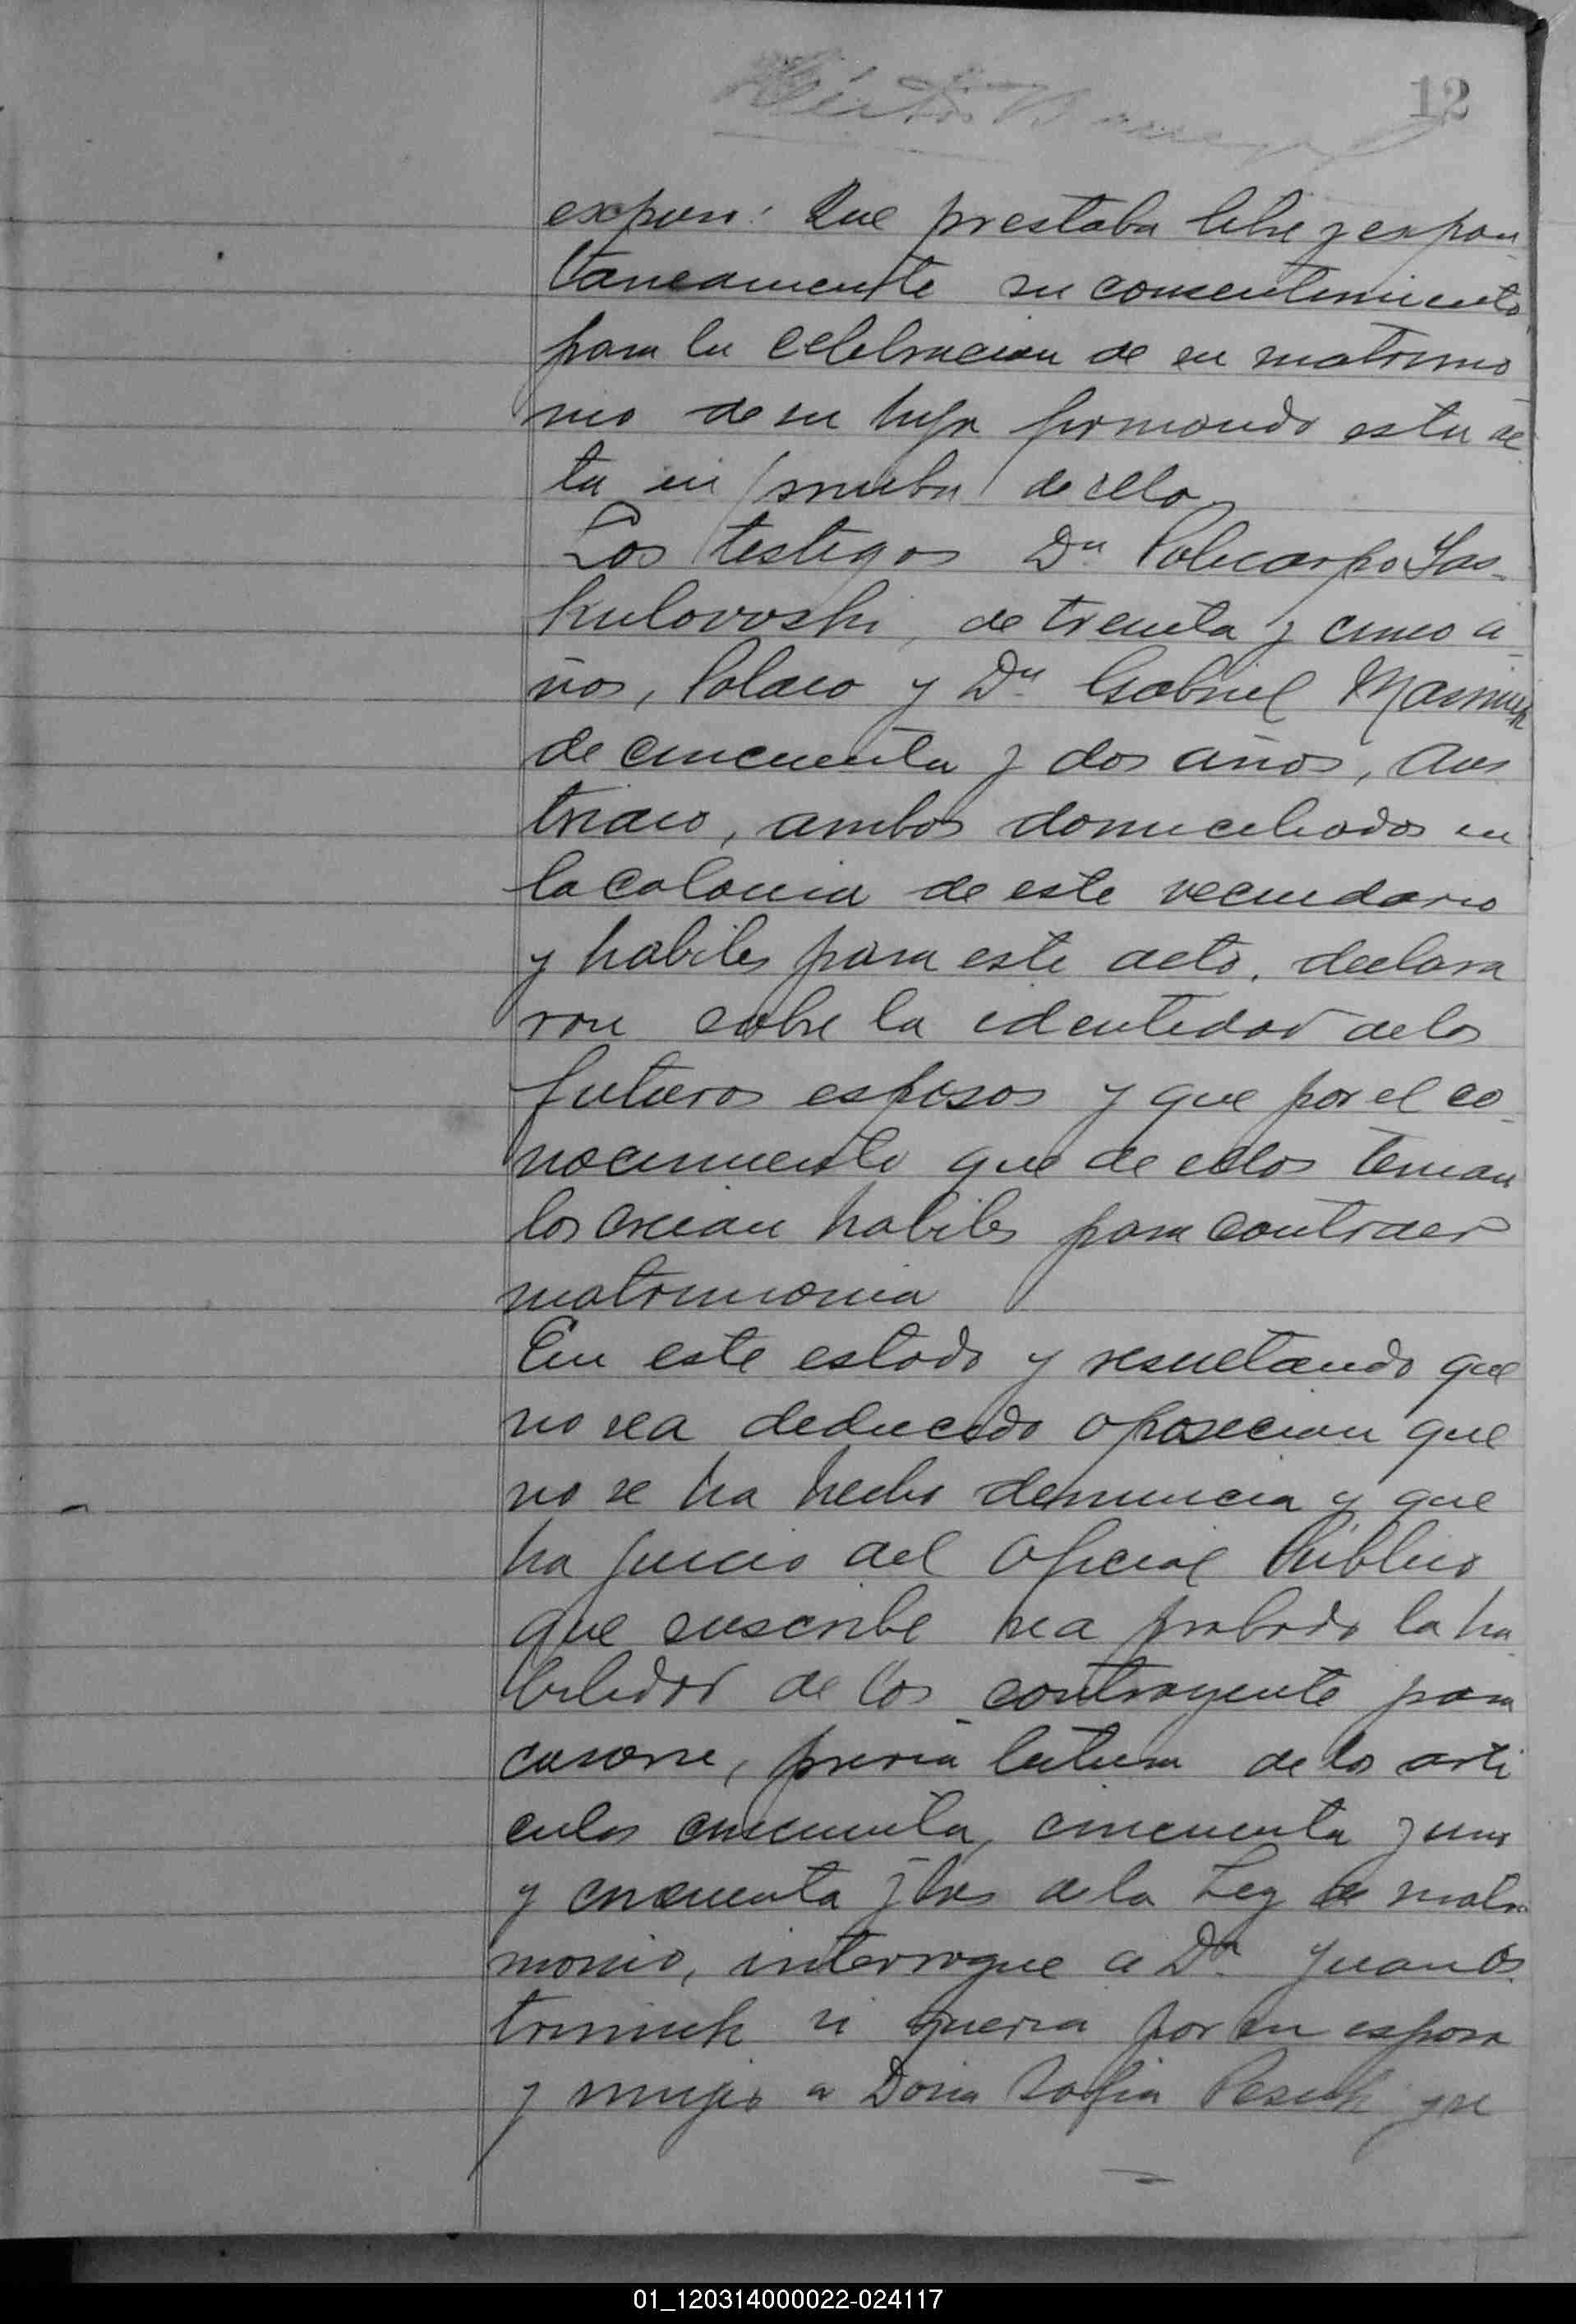 12
expuso: Que prestaba libre y espon
taneamente su consentimiento
para la celebracion de su matrimo
nio de su hija firmando esta ac
ta en prueba de ello
Los testigos Dn Policarpo Sas-
kulovoski, de treinta y cinco a-
ños, Polaco y Dn Gabriel
de cincuenta y dos años, Aus
triaco, ambos domiciliados en
la Colonia de este vecindario
y habiles para este acto, declara
ron sobre la identidad de los
futuros esposos y que por el co-
nocimiento que de ellos tenian
los creian habiles para contraer
matrimonio
En este estado y resultando que
no sea deducido oposicion que
no se ha hecho denuncia y que
ha juicio del Oficial Público
que suscribe sea probado la ha
bilidad de los contrayente para
casarse, previa letura de los arti
culos cincuenta, cincuenta y uno
y cincuenta y tres de la Ley de matri
monio, interrogue a Dn Juan Os
triniuk si queria por su esposa
y mujer a Doña Sofia Pesiuk y si
01_120314000022-024117